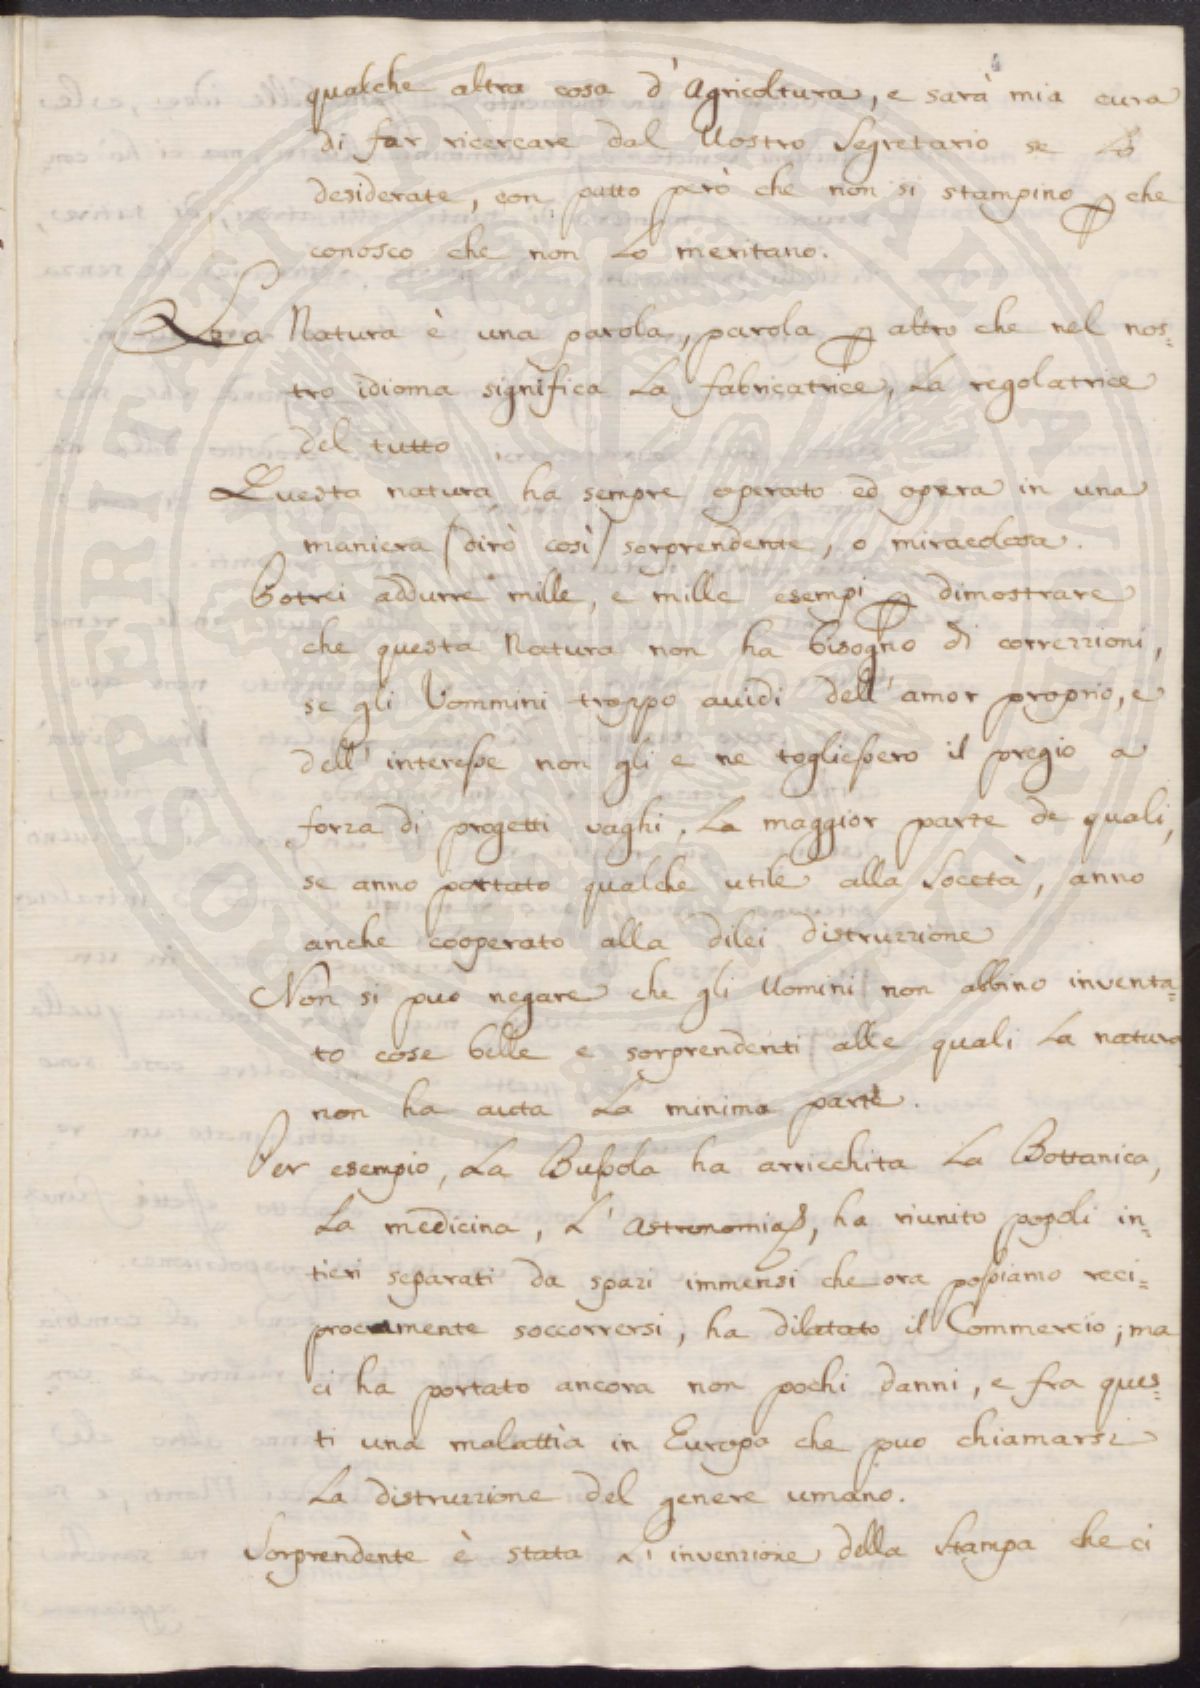 qualche altra cosa d'Agricoltura, e sarà mia cura
di far ricercare dal Vostro Segretario se Lo
desiderate, con patto però che non si stampino p che
conosco che non Lo meritano.
La Natura è una parola, parola p altro che nel nos=
tro idioma significa La fabricatrice, La regolatrice
del tutto
Questa natura ha sempre operato ed opera in una
maniera (dirò così) sorprendente, o miracolosa.
Potrei addurre mille, e mille esempi p dimostrare
che questa Natura non ha bisogno di correzzioni,
se gli Vommini troppo avidi dell'amor proprio, e
dell'interesse non gli e ne togliessero il pregio a
forza di progetti vaghi, La maggior parte de quali,
se anno portato qualche utile alla Soccetà, anno
anche cooperato alla dilei distruzzione
Non si puo negare che gli Uomini non abbino inventa=
to cose belle e sorprendenti alle quali La natura
non ha auta La minima parte.
Per esempio, La Bussola ha arricchita La Bottanica,
La medicina, L'Astronomia, ha riunito popoli in=
tieri separati da spazi immensi che ora possiamo reci=
procamente soccorrersi, ha dilatato il Commercio; ma
ci ha portato ancora non pochi danni, e fra ques=
ti una malattia in Europa che puo chiamarsi
La distruzzione del genere umano.
Sorprendente è stata L'invenzione della Stampa che ci
PROSPERITATI PVBLICAE AVGENDAE